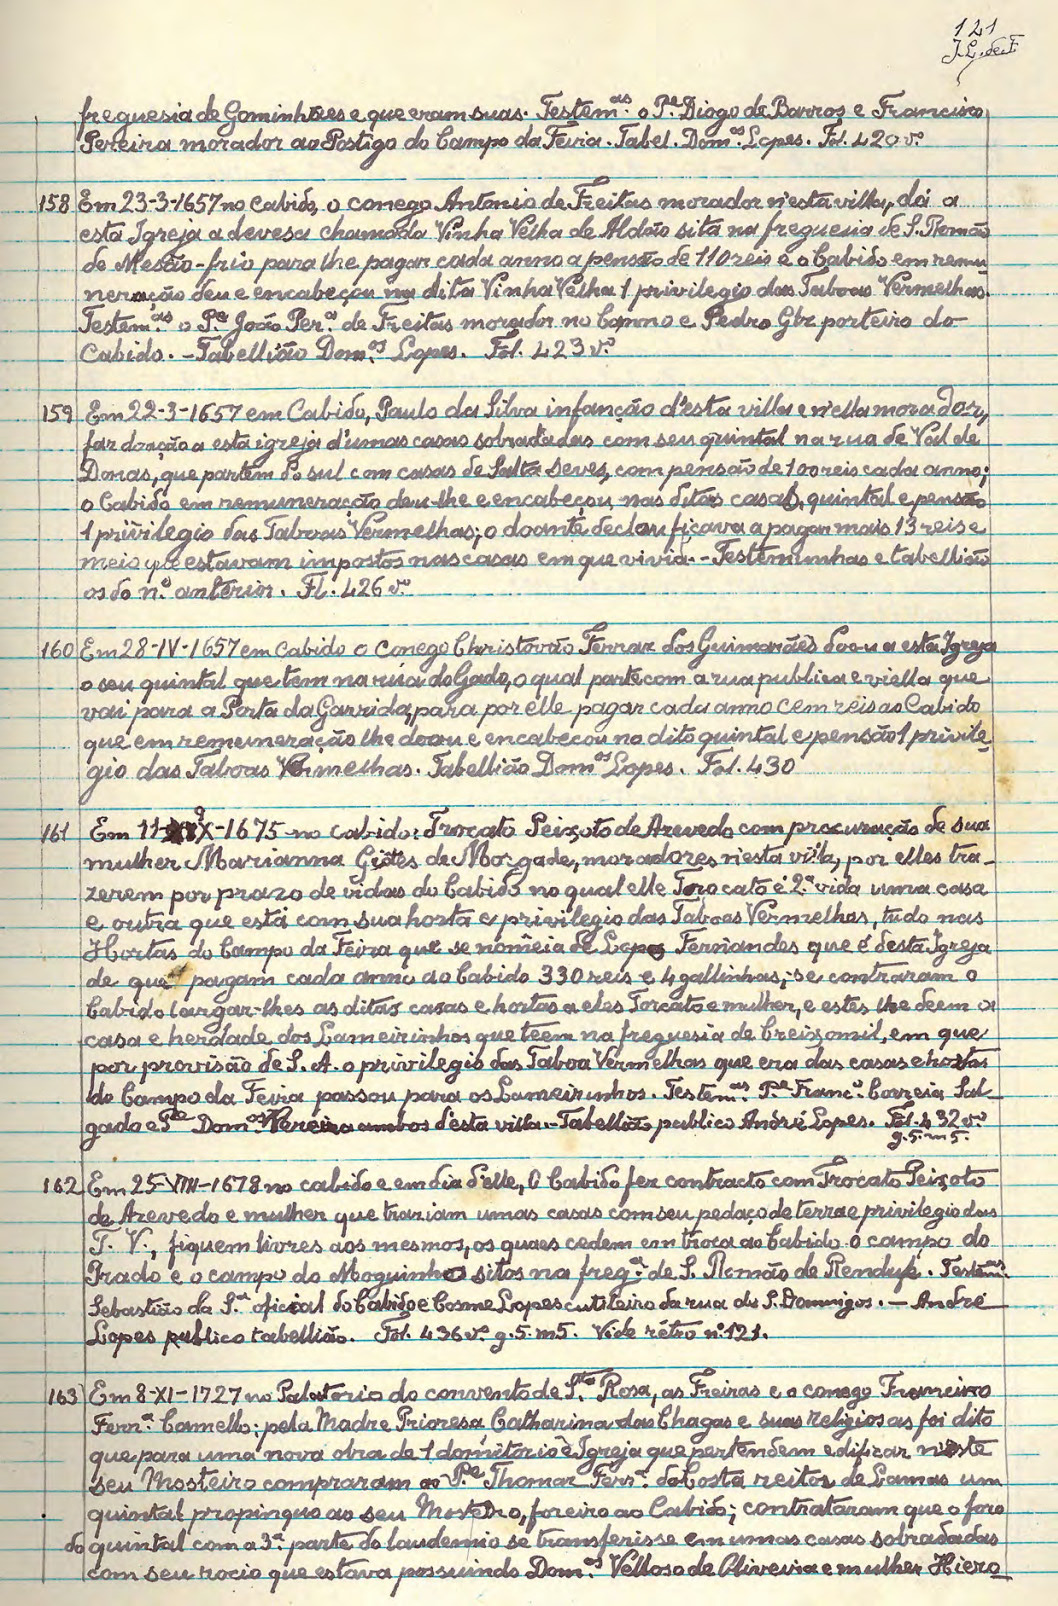 121
J.L. de F.
freguesia de Gominhães e que eram suas. Testem.as o P.e Diogo de Barros e Francisco
Pereira morador ao Postigo do Campo da Feira. Tabel. Dom.os Lopes. Fol. 420 v.º
158 Em 23-3-1657 no Cabido, o conego Antonio de Freitas morador n'esta villa, dá a
esta Igreja a devesa chamada Vinha Velha de Aldão sita na freguesia de S. Romão
de Mesão-frio para lhe pagar cada anno a pensão de 110 reis e o Cabido em remu-
neração deu e encabeçou na dita Vinha Velha 1 privilegio das Taboas Vermelhas.
Testem.as o P.e João Per.a de Freitas morador no Canno e Pedro Glz porteiro do
Cabido. - Tabellião Dom.os Lopes. Fol. 423 v.º
159 Em 22-3-1657 em Cabido, Paulo da Silva infanção d'esta villa e n'ella morador,
faz doação a esta igreja d'umas casas sobradadas com seu quintal na rua de Val de
Donas, que partem do sul com casas de Salta Seves, com pensão de 100 reis cada anno;
o Cabido em remuneração deu-lhe e encabeçou nas ditas casas, quintal e pensão
1 privilegio das Taboas Vermelhas; o doante declarou ficava a pagar mais 13 reis e
meio que estavam impostos nas casas em que vivia. - Testemunhas e tabellião
os do n.º anterior. Fl. 426 v.º
160 Em 28-IV-1657 em Cabido o Conego Christovão Ferraz dos Guimarães doou a esta Igreja
o seu quintal que tem na rua do Gado, o qual parte com a rua publica e viella que
vai para a Porta da Garrida, para por elle pagar cada anno cem reis ao Cabido
que em remuneração lhe doou e encabeçou no dito quintal e pensão 1 privile-
gio das Taboas Vermelhas. Tabellião Dom.os Lopes. Fol. 430
161 Em 11-9X-1675 no Cabido: Trocato Peixoto de Azevedo com procuração de sua
mulher Marianna Giòtes de Morgade, moradores n'esta villa, por elles tra-
zerem por prazo de vidas do Cabido no qual elle Torocato é 2.ª vida uma casa
e outra que está com sua horta e privilegio das Taboas Vermelhas, tudo nas
Hortas do Campo da Feira que se nomeia de Lopes Fernandes que é desta Igreja
de que pagam cada anno ao Cabido 330 reis e 4 gallinhas; se contraram o
Cabido largar-lhes as ditas casas e hortas a eles Torcato e mulher, e estes lhe deem a
casa e herdade dos Lameirinhos que teem na freguesia de Creixomil, em que
por provisão de S. A. o privilegio das Taboa Vermelhas que era das casas e hortas
do Campo da Feira passou para os Lameirinhos. Testem.as P.e Franc.º Correia Sal-
gado e P.e Dom.os Pereira ambos d'esta villa. - Tabellião publico André Lopes. Fol. 432 v.º
g. 5. m 5.
162 Em 25-VIII-1678 no cabido e em dia d'elle, O Cabido fez contracto com Trocato Peixoto
de Azevedo e mulher que traziam umas casas com seu pedaço de terra e privilegio das
T. V., fiquem livres aos mesmos, os quaes cedem em troca ao Cabido o campo do
Prado e o campo do Moquinho sitos na freg.ª de S. Romão de Rendufe. Testem.as
Sebastião da S.ª oficial do Cabido e Cosme Lopes cutileiro da rua de S. Domingos. - André
Lopes publico tabellião. Fol. 436 v.º g. 5. m 5. Vide rétro n.º 121.
163 Em 8-XI-1727 no Palratorio do convento de S.ta Rosa, as Freiras e o conego Francisco
Ferr.ª Camello: pela Madre Prioresa Catharina das Chagas e suas religiosas foi dito
que para uma nova obra de 1 dormitorio e Igreja que pertendem edificar n'este
seu Mosteiro compraram ao P.e Thomaz Ferr.ª da Costa reitor de Lamas um
quintal propinquo ao seu Mosteiro, foreiro ao Cabido; contrataram que o foro
do quintal com a 3.ª parte do laudemio se transferisse em umas casas sobradadas
com seu rocio que estava possuindo Dom.os Velloso de Oliveira e mulher Hiero-